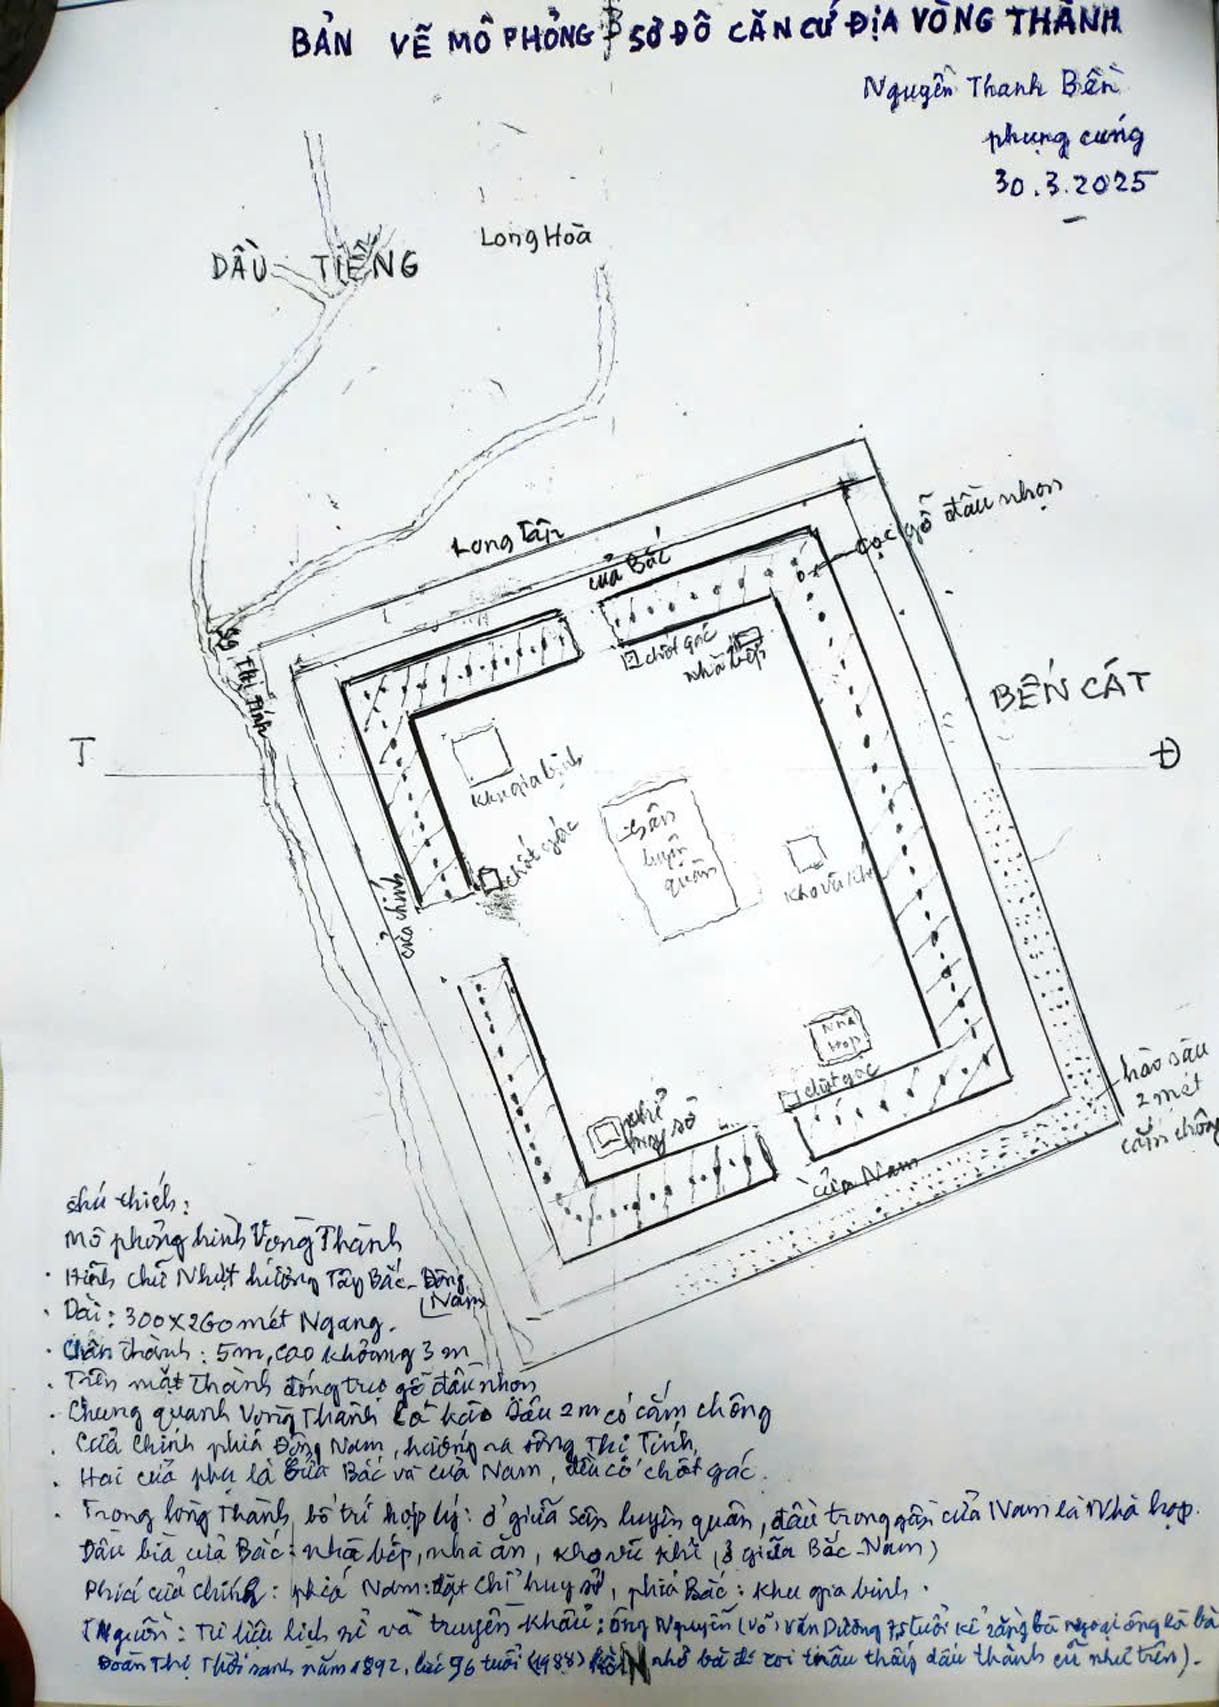 BẢN VẼ MÔ PHỎNG SƠ ĐỒ CĂN CỨ ĐỊA VÒNG THÀNH
Nguyễn Thanh Bền
phụng cúng
30.3.2025
DẦU TIẾNG
Long Hoà
Long Tân
cửa Bắc
cọc gỗ đầu nhọn
chốt gác
nhà bếp
Sg Thị Tính
BẾN CÁT
T
Đ
Khu gia binh
Sân
luyện
quân
chốt gác
Kho vũ khí
cửa chính
Nhà
họp
chốt gác
chỉ
huy sở
hào sâu
2 mét
cắm chông
cửa Nam
chú thích:
Mô phỏng hình Vòng Thành
. Hình chữ Nhựt hướng Tây Bắc - Đông
Nam
. Dài: 300 x 260 mét Ngang.
. Chân thành: 5m, cao khoảng 3m
. Trên mặt thành đóng trụ gỗ đầu nhọn
. Chung quanh Vòng Thành có hào sâu 2m có cắm chông
. Cửa chính phía Đông Nam, hướng ra sông Thị Tính,
. Hai cửa phụ là Cửa Bắc và cửa Nam, đều có chốt gác.
. Trong lòng Thành, bố trí hợp lý: ở giữa sân luyện quân, đầu trong gần cửa Nam là Nhà họp.
Đầu bìa cửa Bắc: nhà bếp, nhà ăn, kho vũ khí (ở giữa Bắc-Nam)
Phía cửa chính: phía Nam: đặt chỉ huy sở, phía Bắc: khu gia binh.
(Nguồn: Tư liệu lịch sử và truyền khẩu: ông Nguyễn (Võ) Văn Dương 75 tuổi kể rằng bà ngoại ông là bà
Đoàn Thị Thời sanh năm 1892, lúc 96 tuổi (1988) nhờ bà đi coi thấy dấu thành cũ như trên).